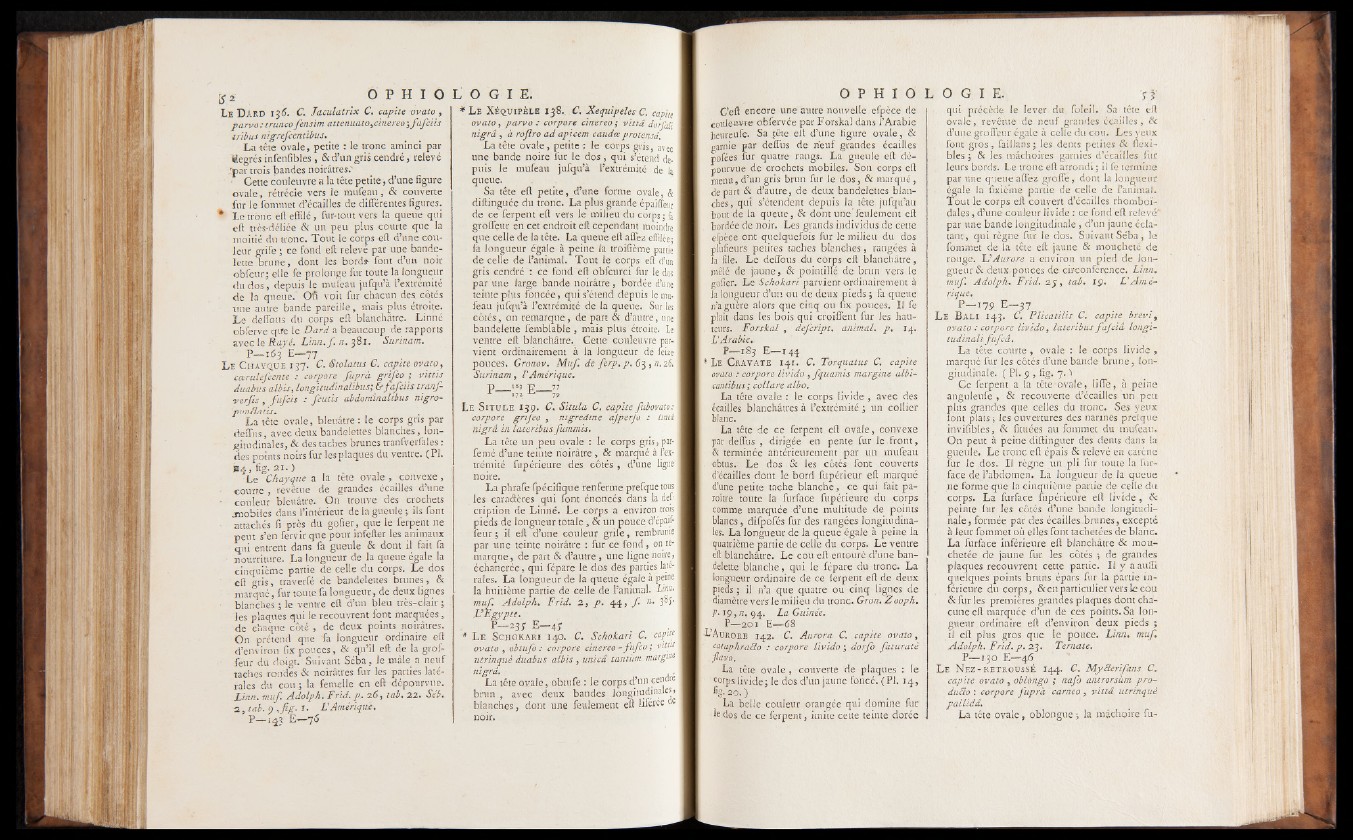 52
OPHIOLOGIE.
LE DARD 136. C. Jaculatrix C. capite ovato,
parvo: trunco sensim attenuato, cinereo; fasciis
tribus nigrescentibus.
La tête ovale, petite : le tronc aminci par
degrés insensibles, & d'un gris cendré, relevé
par trois bandes noirâtres.
Cette couleuvre a la tête petite, d'une figure
ovale, rétrécie vers le museau, & couverte
sur le sommet d'écailles de différentes figures.
Le tronc est effilé, sur-tout vers la queue qui
est très-déliée & un peu plus courte que la
moitié du tronc. Tout le corps est d'une cou-
leur grise; ce fond est relevé par une bande-
lette brune, dont les bords sont d'un noir
obscur; elle se prolonge sur toute la longueur
du dos, depuis le museau jusqu'à l'extrémité
de la queue. On voit sur chacun des côtés
une autre bande pareille, mais plus étroite.
Le dessous du corps est blanchâtre. Linné
observe que le Dard a beaucoup de rapports
avec le Rayé. Linn. s. n. 381. Surinam.
P—163 E—77
LE CHAYQUE 137. C. Stolatus C. capite ovato,
cærulescente : corpore suprà griseo; vittis
duabus albis, longitudinalibus; & fasciis transf-
versis, fuscis : scutis abdominalibus nigro-
punctatis.
La tête ovale, bleuâtre : le corps gris par
dessus, avec deux bandelettes blanches, lon-
gitudinales, & des taches brunes transversales :
des points noirs sur les plaques du ventre. (Pl.
14, fig. 21.)
Le Chayque a la tête ovale, convexe,
courte, revêtue de grandes écailles d'une
couleur bleuâtre. On trouve des crochets
mobiles dans l'intérieur de la gueule; ils sont
attachés si près du gosier, que le serpent ne
peut s'en servir que pour infester les animaux
qui entrent dans sa gueule & dont il fait sa
nourriture. La longueur de la queue égale la
cinquième partie de celle du corps. Le dos
est gris, traversé de bandelettes brunes, &
marqué, sur toute sa longueur, de deux lignes
blanches; le ventre est d'un bleu très-clair;
les plaques qui le recouvrent sont marquées,
de chaque côté, de deux points noirâtres.
On prétend que sa longueur ordinaire est
d'environ six pouces, & qu'il est de la gros-
seur du doigt. Suivant Séba, le mâle a neuf
taches rondes & noirâtres sur les parties laté-
rales du cou; la femelle en est dépourvue.
Linn. mus. Adolph. Frid. p. 26, tab. 22. Séb.
2, tab. 9, fig. 1. L'Amérique.
P—143 E—76
* LE XÉQUIPÈLE 138. C. Xequipeles C. capite
ovato, parvo : corpore cinereo; vittâ dorsali
nigrâ, à rostro ad apicem caudæ protensâ.
La tête ovale, petite : le corps gris, avec
une bande noire sur le dos, qui s'étend de-
puis le museau jusqu'à l'extrémité de la
queue.
Sa tête est petite, d'une forme ovale, &
distinguée du tronc. La plus grande épaisseur
de ce serpent est vers le milieu du corps; sa
grosseur en cet endroit est cependant moindre
que celle de la tête. La queue est assez effilée;
sa longueur égale à peine la troisième partie
de celle de l'animal. Tout le corps est d'un
gris cendré : ce fond est obscurci sur le dos
par une large bande noirâtre, bordée d'une
teinte plus foncée, qui s'étend depuis le mu-
seau jusqu'à l'extrémité de la queue. Sur les
côtés, on remarque, de part & d'autre, une
bandelette semblable, mais plus étroite. Le
ventre est blanchâtre. Cette couleuvre par-
vient ordinairement à la longueur de seize
pouces. Gronov. Mus. de serp. p. 63, n. 26.
Surinam, l'Amérique.
LE SITULE 139. C. Situla C. capite subovato:
corpore griseo, nigredine asperso : lineâ
nigrâ in lateribus summis.
La tête un peu ovale : le corps gris, par-
semé d'une teinte noirâtre, & marqué à l'ex-
trémité supérieure des côtés, d'une ligne
noire.
La phrase spécifique renferme presque tous
les caractères qui sont énoncés dans la des-
cription de Linné. Le corps a environ trois
pieds de longueur totale, & un pouce d'épais-
seur; il est d'une couleur grise, rembrunie
par une teinte noirâtre : sur ce fond, on re-
marque, de part & d'autre, une ligne noire,
échancrée, qui sépare le dos des parties laté-
rales. La longueur de la queue égale à peine
la huitième partie de celle de l'animal. Linn.
mus. Adolph. Frid. 2, p. 44, s. n.
L'Egypte.
P—235 E—45
* LE SCHOKARI 140. C. Schokari C. capite
ovato, obtuso : corpore cinereo-fusco; vittis
utrinquè duabus albis, unicâ tantùm marginē
nigrâ.
La tête ovale, obtuse : le corps d'un cendré
brun, avec deux bandes longitudinales,
blanches, dont une seulement est liserée de
noir.
OPHIOLOGIE.
53
C'est encore une autre nouvelle espèce de
couleuvre observée par Forskal dans l'Arabie
heureuse. Sa tête est d'une figure ovale, &
garnie par dessus de neuf grandes écailles
posées sur quatre rangs. La gueule est dé-
pourvue de crochets mobiles. Son corps est
menu, d'un gris brun sur le dos, & marqué,
de part & d'autre, de deux bandelettes blan-
ches, qui s'étendent depuis la tête jusqu'au
bout de la queue, & dont une seulement est
bordée de noir. Les grands individus de cette
espèce ont quelquefois sur le milieu du dos
plusieurs petites taches blanches, rangées à
la file. Le dessous du corps est blanchâtre,
mêlé de jaune, & pointillé de brun vers le
gosier. Le Schokari parvient ordinairement à
la longueur d'un ou de deux pieds; sa queue
n'a guère alors que cinq ou six pouces. Il se
plaît dans les bois qui croissent sur les hau-
teurs. Forskal, descript. animal. p. 14.
L'Arabie.
P—183 E—144
* LE CRAVATE 141. C. Torquatus C. capite
ovato : corpore livido, squamis margine albi-
cantibus; collare albo.
La tête ovale : le corps livide, avec des
écailles blanchâtres à l'extrémité; un collier
blanc.
La tête de ce serpent est ovale, convexe
par dessus, dirigée en pente sur le front,
& terminée antérieurement par un museau
obtus. Le dos & les côtés sont couverts
d'écailles dont le bord supérieur est marqué
d'une petite tache blanche, ce qui fait pa-
roître toute la surface supérieure du corps
comme marquée d'une multitude de points
blancs, disposés sur des rangées longitudina-
les. La longueur de la queue égale à peine la
quatrième partie de celle du corps. Le ventre
est blanchâtre. Le cou est entouré d'une ban-
delette blanche, qui le sépare du tronc. La
longueur ordinaire de ce serpent est de deux
pieds; il n'a que quatre ou cinq lignes de
diamètre vers le milieu du tronc. Gron. Zooph.
p. 19, n. 94. La Guinée.
P—201 E—68
L'AURORE 142. C. Aurora C. capite ovato,
cataphracto : corpore livido; dorso saturatè
flavo.
La tête ovale, couverte de plaques : le
corps livide; le dos d'un jaune foncé. (Pl. 14,
fig. 20.)
La belle couleur orangée qui domine sur
le dos de ce serpent, imite cette teinte dorée
qui précède le lever du soleil. Sa tête est
ovale, revêtue de neuf grandes écailles, &
d'une grosseur égale à celle du cou. Les yeux
sont gros, saillans; les dents petites & flexi-
bles; & les mâchoires garnies d'écailles sur
leurs bords. Le tronc est arrondi; il se termine
par une queue assez grosse, dont la longueur
égale la sixième partie de celle de l'animal.
Tout le corps est couvert d'écailles rhomboï-
dales, d'une couleur livide : ce fond est relevé
par une bande longitudinale, d'un jaune écla-
tant, qui règne sur le dos. Suivant Séba, le
sommet de la tête est jaune & moucheté de
rouge. L'Aurore a environ un pied de lon-
gueur & deux pouces de circonférence. Linn.
mus. Adolph. Frid. 25, tab. 19. L'Amé-
rique.
P—179 E—37
LE BALI 143. C. Plicatilis C. capite brevi,
ovato : corpore livido, lateribus fasciâ longi-
tudinali fuscâ.
La tête courte, ovale : le corps livide,
marqué sur les côtés d'une bande brune, lon-
gitudinale. (Pl. 9, fig. 7.)
Ce serpent a la tête ovale, lisse, à peine
anguleuse, & recouverte d'écailles un peu
plus grandes que celles du tronc. Ses yeux
sont plats; les ouvertures des narines presque
invisibles, & situées au sommet du museau.
On peut à peine distinguer des dents dans la
gueule. Le tronc est épais & relevé en carène
sur le dos. Il règne un pli sur toute la sur-
face de l'abdomen. La longueur de la queue
ne forme que la cinquième partie de celle du
corps. La surface supérieure est livide, &
peinte sur les côtés d'une bande longitudi-
nale, formée par des écailles brunes, excepté
à leur sommet où elles sont tachetées de blanc.
La surface inférieure est blanchâtre & mou-
chetée de jaune sur les côtés; de grandes
plaques recouvrent cette partie. Il y a aussi
quelques points bruns épars sur la partie in-
férieure du corps, & en particulier vers le cou
& sur les premières grandes plaques dont cha-
cune est marquée d'un de ces points. Sa lon-
gueur ordinaire est d'environ deux pieds;
il est plus gros que le pouce. Linn. mus.
Adolph. Frid. p. 23. Ternate.
P—130 E—46
LE NEZ-RETROUSSÉ 144. C. Mycterisans C.
capite ovato, oblongo; naso antrorsùm pro-
ducto : corpore suprà carneo, vittâ utrinquè
pallidâ.
La tête ovale, oblongue; la mâchoire su-